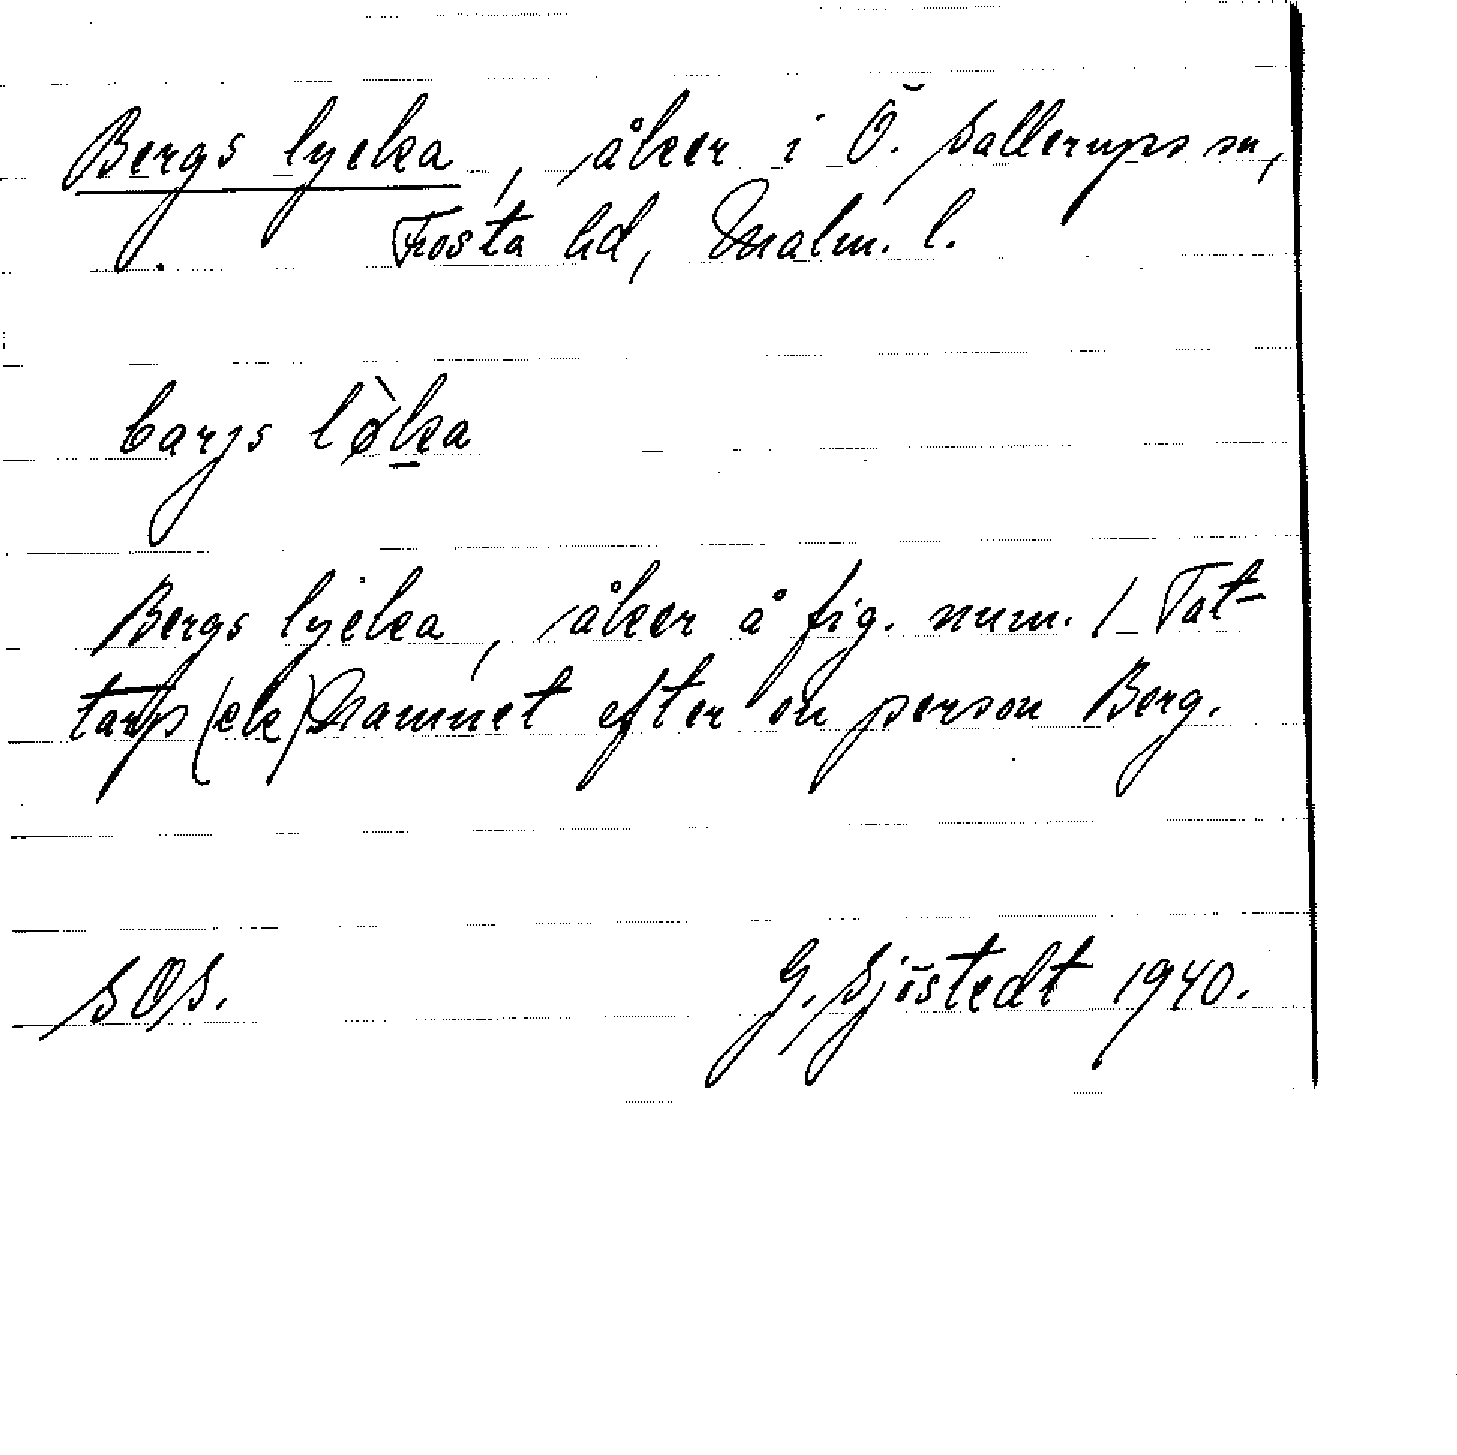 Bergs lycka, åker i Ö. Sallerups sn,
Frosta hd, Malm. l.
barjs lø̀ka
Bergs lycka, åker å fig. num. 1 Tat-
tarp (ek) Namnet efter en person Berg.
SOS.
G. Sjöstedt 1940.